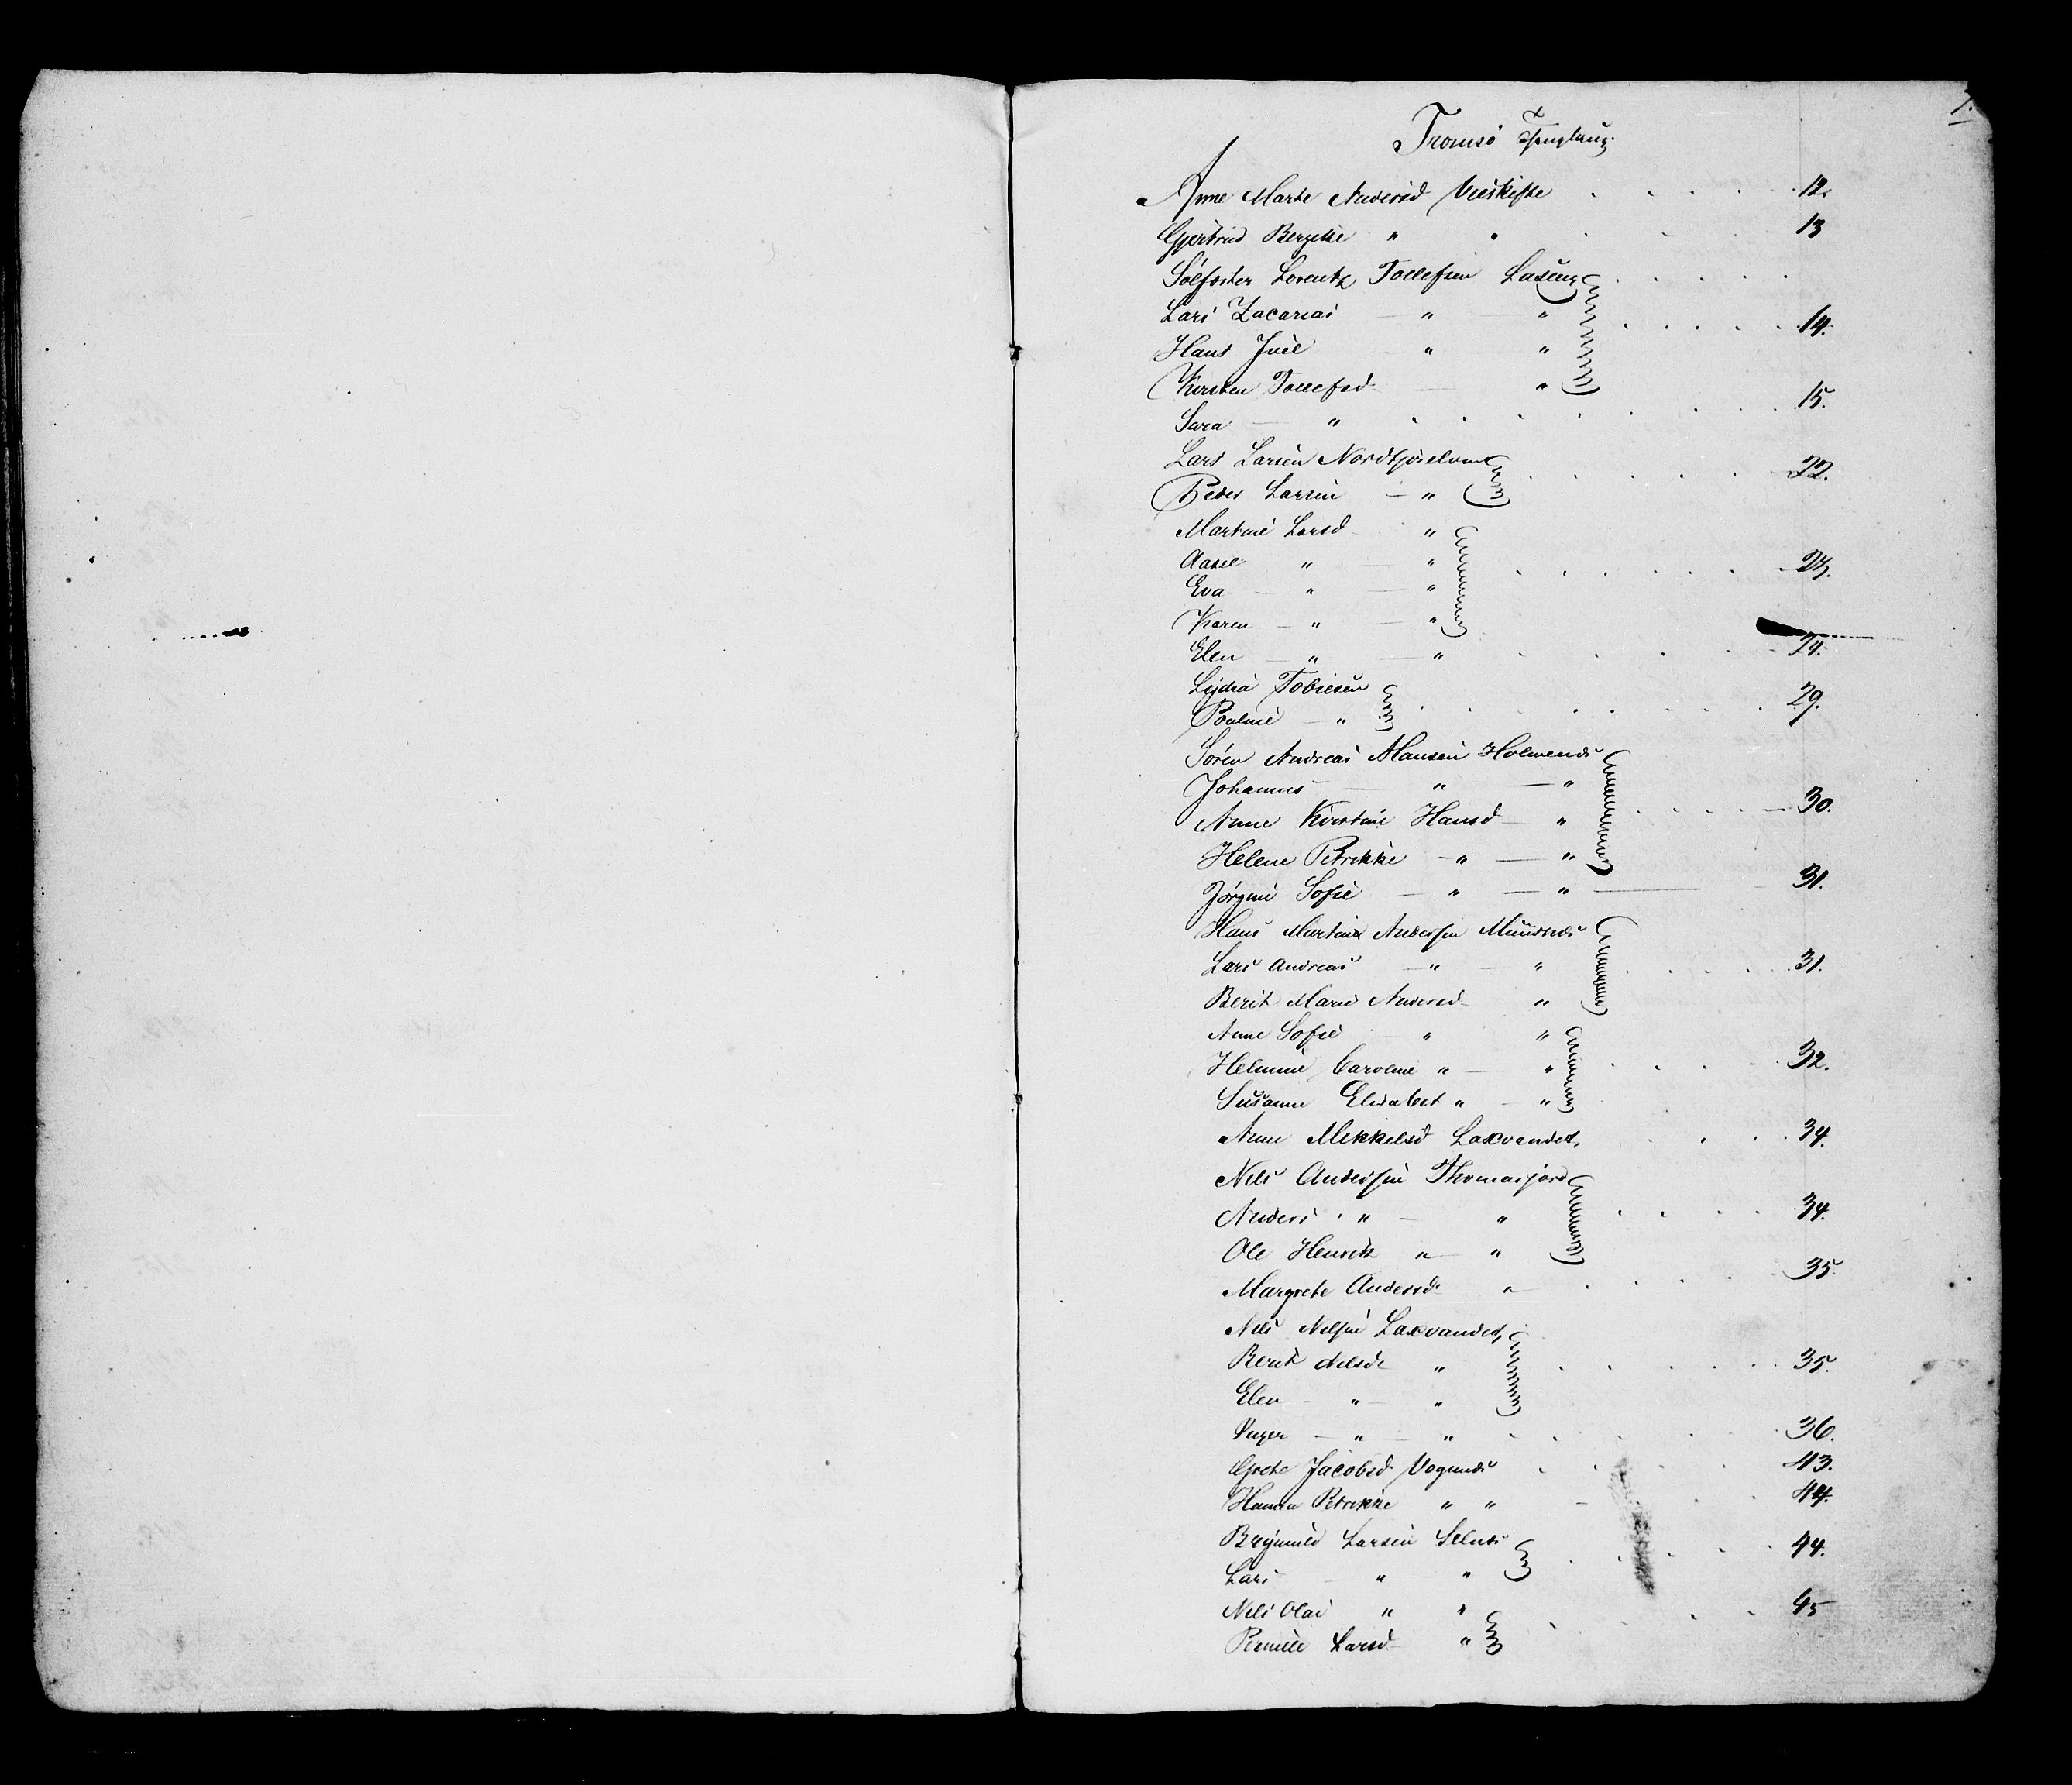 7.
Tromsö Thinglaug.
Anne Marte Andersd Vieskifte . . . . 12.
Gjertrud Bergitte " " . . . 13
Sölfester Lorentz Tollefsen Laxeng . . . . .
Lars Zacarias — " — " . . . . . 14.
Hans Juel " "
Kirsten Tollefsd — "
Sara — " . . . . . . . 15.
Lars Larsen Nordkjoselven . . . . . 22.
Peder Larsen — "
Martine Larsd "
Aasel " — " . . . . . . . 23.
Eva — " — "
Karen — " — "
Elen — " — " . . . . . 24.
Lydia Tobiesen
Pauline — " . . . . . . . 29.
Sören Andreas Hansen Holmenæs
Johannes — " — "
Anne Kirstine Hansd — " . . . . . 30.
Helene Petrikke — " — "
Jörgine Sofie — " — " — 31.
Hans Martin Andersen
Lars Andreas — " — " . . . . 31.
Berit Marie Andersd "
Anne Sofie " "
Helmine Caroline " — " . . . . 32.
Susanne Elisabet " — "
Anne Mikkelsd Laxvandet, . . . 34.
Nils Andersen Thomasjord
Anders " — " . . . . 34.
Ole Henrik " — "
Margrete Andersd " . . . . . 35.
Nils Nilsen Laxvandet,
Berit Nilsd " . . . . . . 35.
Elen — " — "
Inger — " — " . . . . . 36.
Grete Jacobsd Vognæs . . . . 43.
Hanna Petrikke " " — . . 44.
Larsen
Lars " " . . . . . 44.
Nils Olai " " . . . 45
Pernille Larsd "